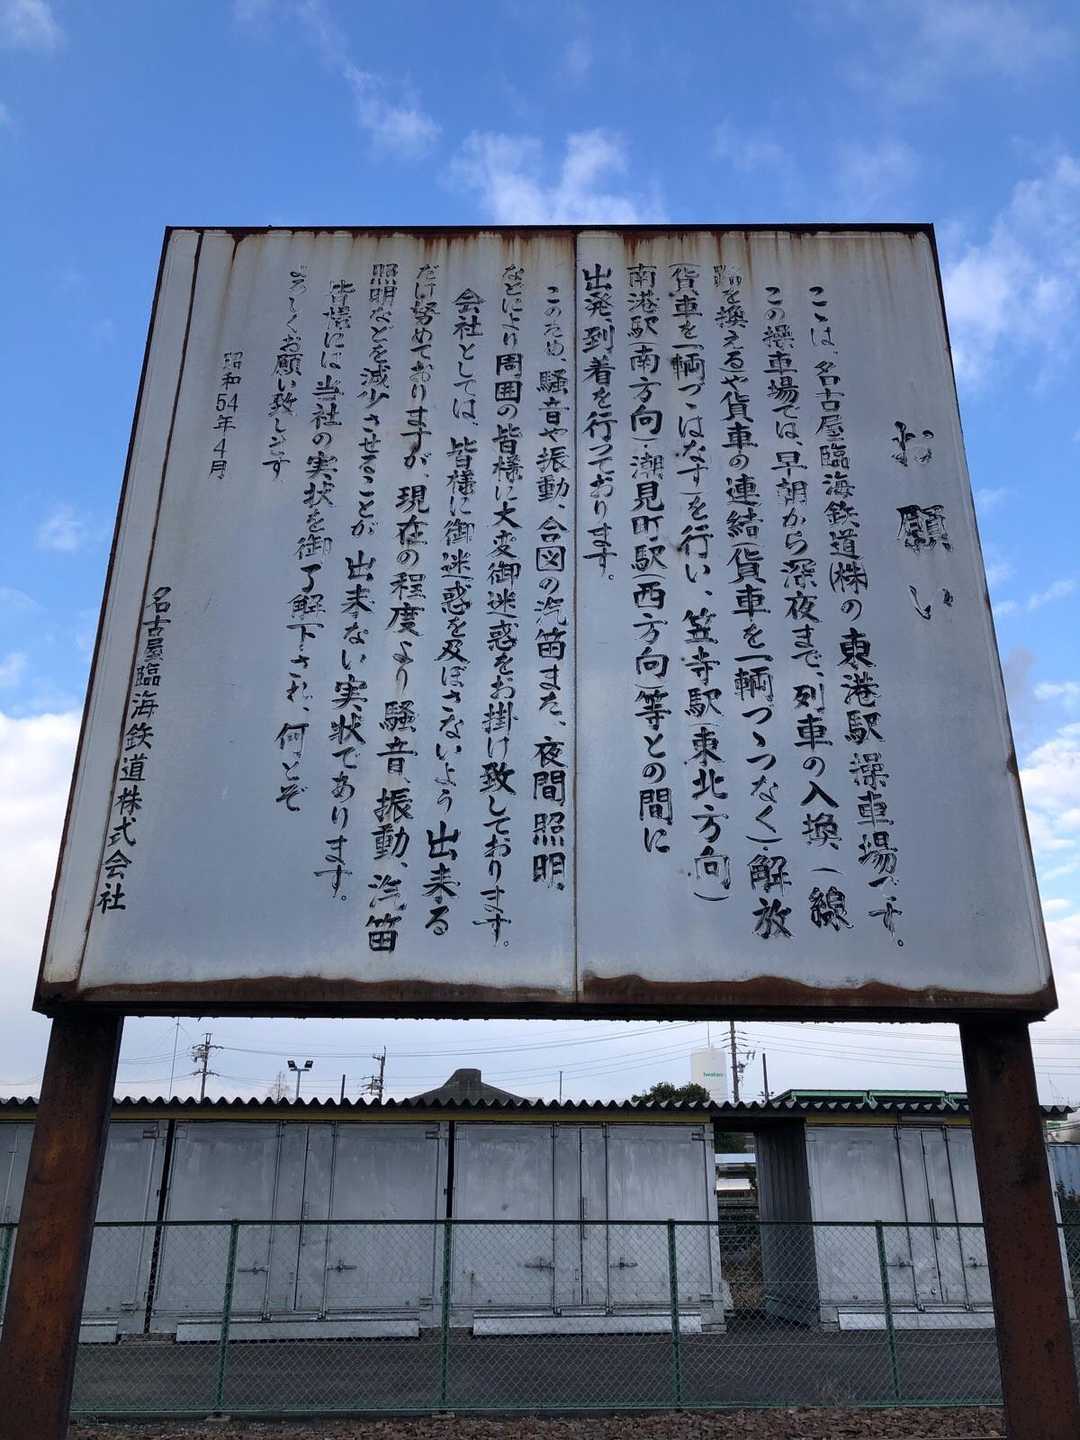 お願い
ここは、名古屋臨海鉄道(株)の東港駅操車場です。
この操車場では、早朝から深夜まで、列車の入換(線
路を換える)や貨車の連結(貨車を一輌づつつなぐ)・解放
(貨車を一輌づつはなす)を行い、笠寺駅(東北方向)
南港駅(南方向)・潮見町駅(西方向)等との間に
出発、到着を行っております。
このため、騒音や振動、合図の汽笛また、夜間照明
などにより周囲の皆様に大変御迷惑をお掛け致しております。
会社としては、皆様に御迷惑を及ぼさないよう出来る
だけ努めておりますが、現在の程度より騒音、振動、汽笛
照明などを減少させることが出来ない実状であります。
皆様には当社の実状を御了解下され、何とぞ
よろしくお願い致します
昭和54年4月
名古屋臨海鉄道株式会社
Iwatani